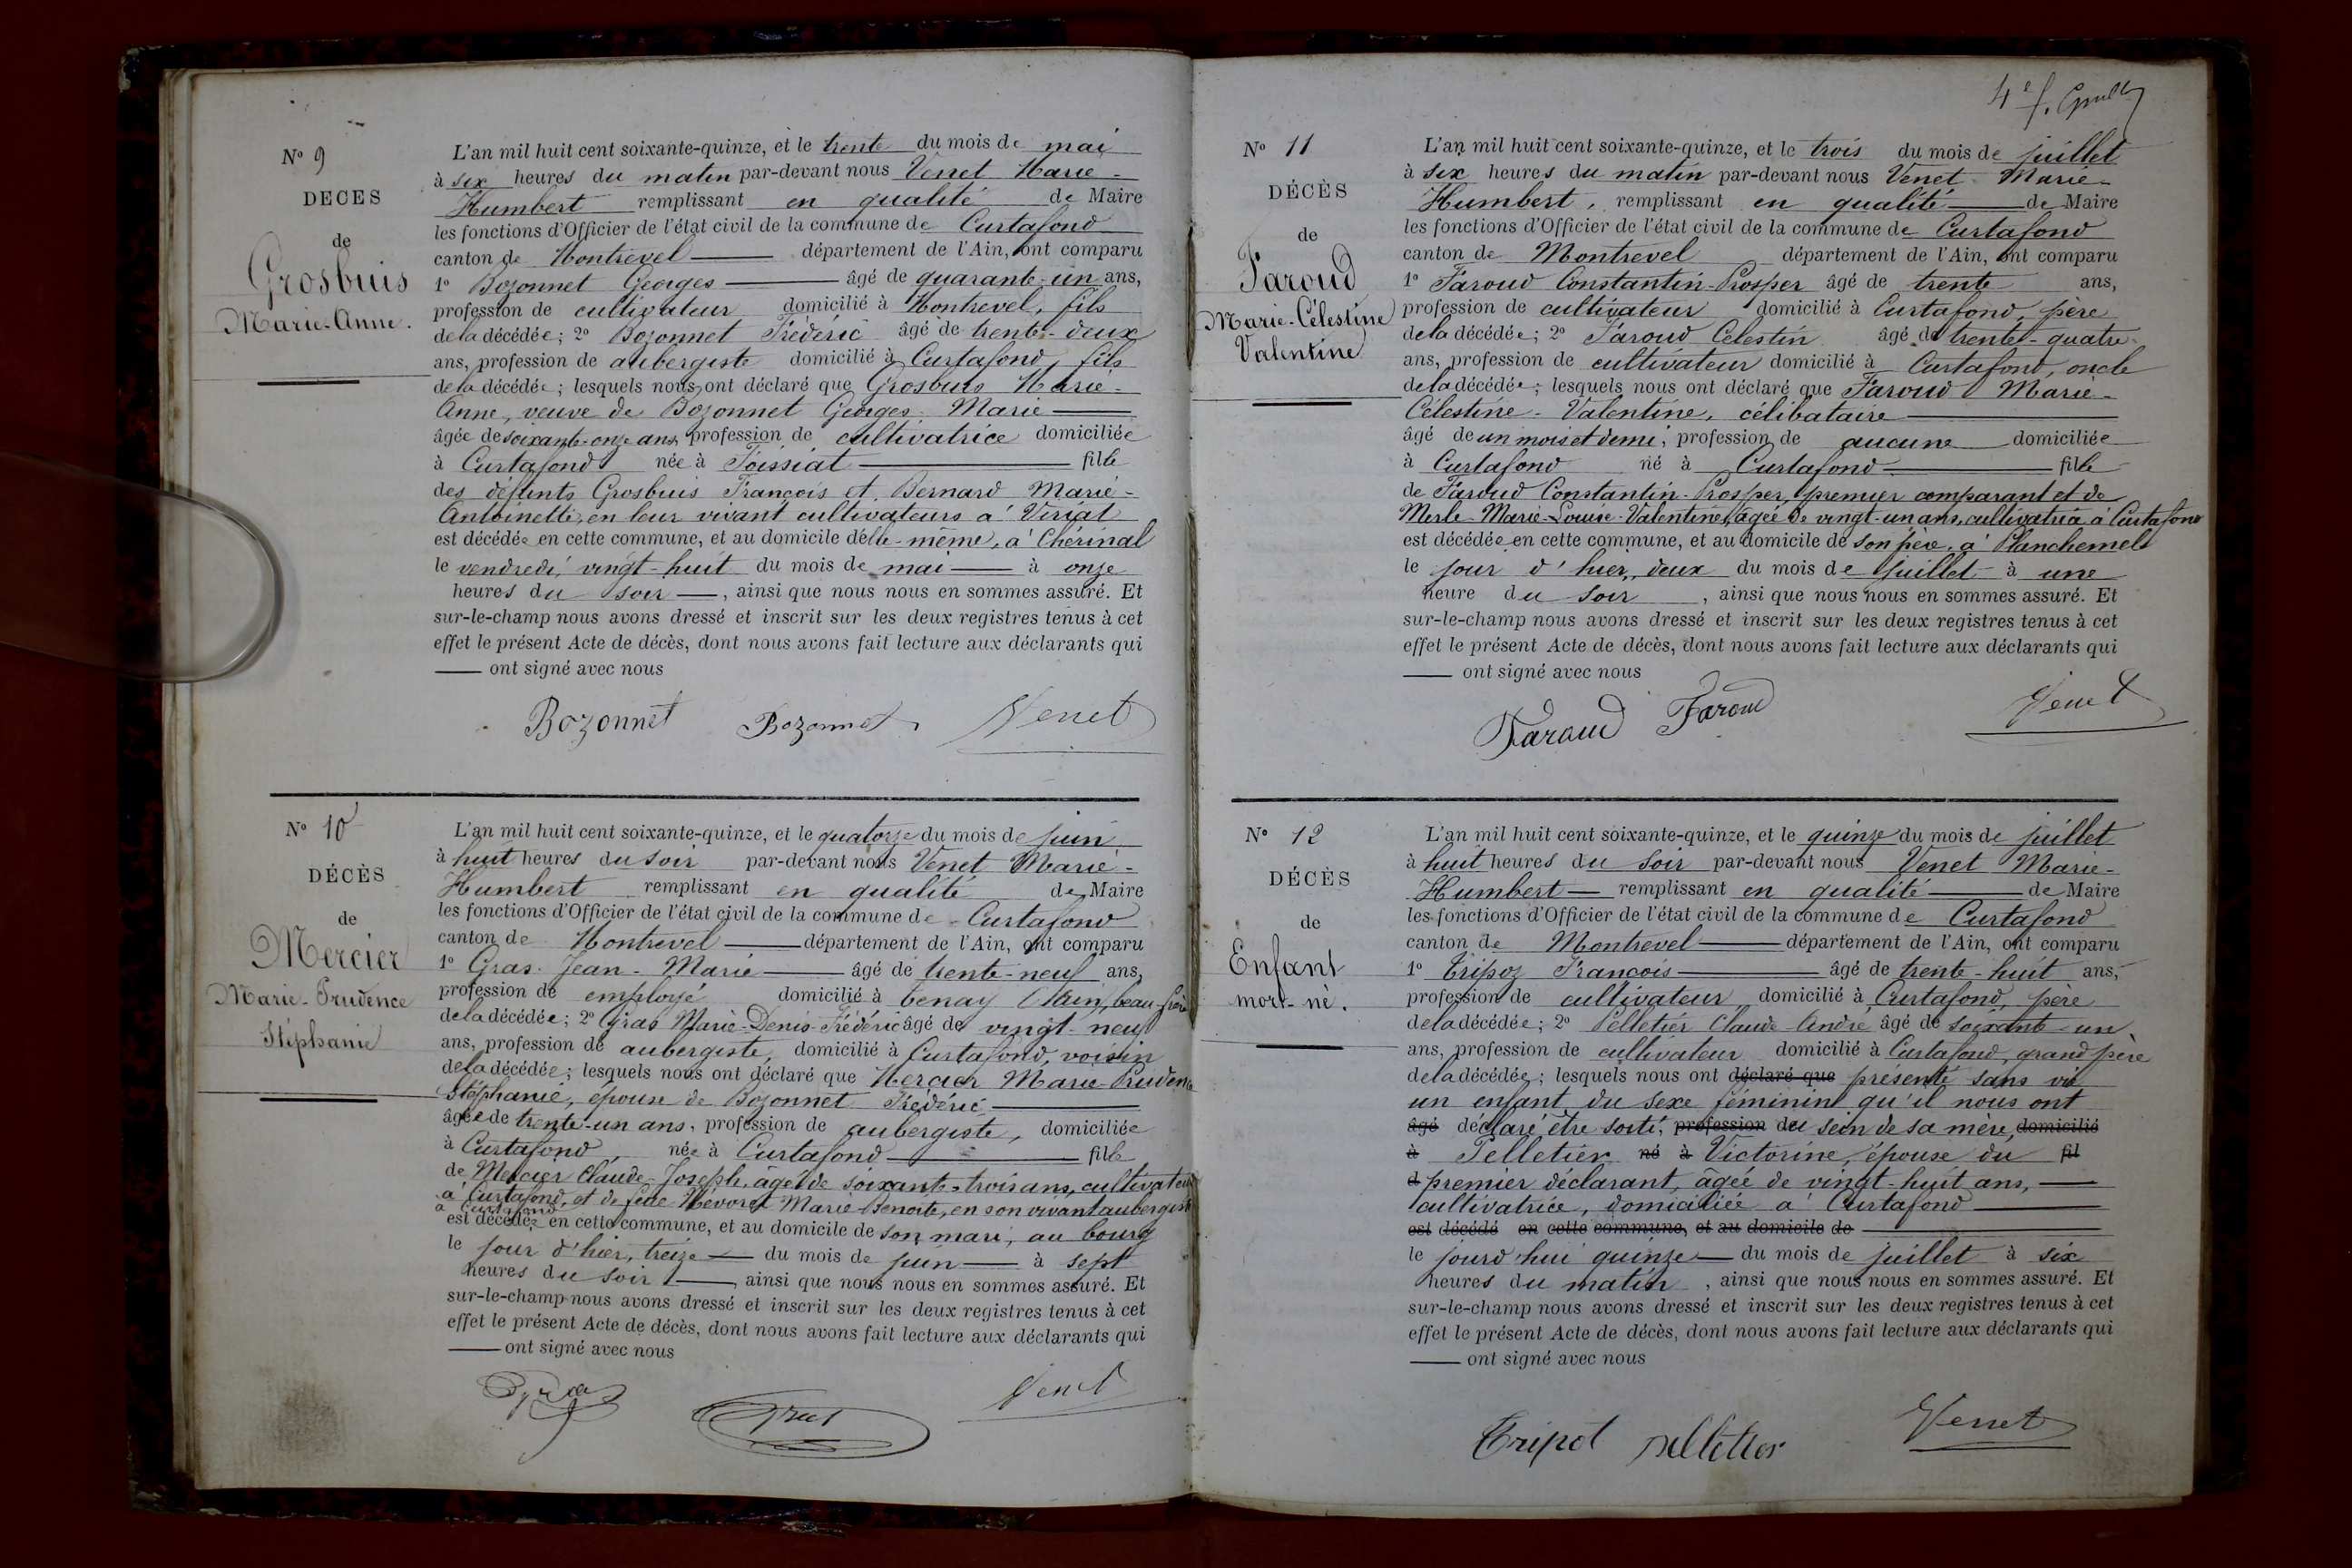 N° 9
DÉCÈS
de
Grosbuis
Marie-Anne.
L'an mil huit cent soixante-quinze, et le trente du mois de mai
à six heures du matin par-devant nous Venet Marie-
Humbert remplissant en qualité de Maire
les fonctions d'Officier de l'état civil de la commune de Curtafond
canton de Montrevel département de l'Ain, ont comparu
1° Bozonnet Georges âgé de quarante-un ans,
profession de cultivateur domicilié à Montrevel, fils
de la décédée; 2° Bozonnet Frédéric âgé de trente-deux
ans, profession de aubergiste domicilié à Curtafond, fils
de la décédée; lesquels nous ont déclaré que Grosbuis Marie-
Anne, veuve de Bozonnet Georges Marie
âgée de soixante-onze ans, profession de cultivatrice domiciliée
à Curtafond née à Foissiat fille
des défunts Grosbuis François et Bernard Marie-
Antoinette, en leur vivant cultivateurs à Viriat
est décédée en cette commune, et au domicile d'elle-même, à Chérinal
le vendredi, vingt-huit du mois de mai à onze
heures du soir, ainsi que nous nous en sommes assuré. Et
sur-le-champ nous avons dressé et inscrit sur les deux registres tenus à cet
effet le présent Acte de décès, dont nous avons fait lecture aux déclarants qui
ont signé avec nous
Bozonnet Bozonnet Venet
N° 10
DÉCÈS
de
Mercier
Marie-Prudence
Stéphanie
L'an mil huit cent soixante-quinze, et le quatorze du mois de juin
à huit heures du soir par-devant nous Venet Marie-
Humbert remplissant en qualité de Maire
les fonctions d'Officier de l'état civil de la commune de Curtafond
canton de Montrevel département de l'Ain, ont comparu
1° Gras Jean-Marie âgé de trente-neuf ans,
profession de employé domicilié à Tenay (Ain), beau-frère
de la décédée; 2° Gras Marie-Denis-Frédéric âgé de vingt-neuf
ans, profession de aubergiste, domicilié à Curtafond, voisin
de la décédée; lesquels nous ont déclaré que Mercier Marie-Prudence
Stéphanie, épouse de Bozonnet Frédéric
âgée de trente-un ans, profession de aubergiste, domiciliée
à Curtafond, née à Curtafond fille
de Mercier Claude-Joseph, âgé de soixante-trois ans, cultivateur
à Curtafond, et de feue Névoret Marie-Benoite, en son vivant aubergiste
à Curtafond
est décédée en cette commune, et au domicile de son mari, au bourg
le jour d'hier, treize du mois de juin à sept
heures du soir, ainsi que nous nous en sommes assuré. Et
sur-le-champ nous avons dressé et inscrit sur les deux registres tenus à cet
effet le présent Acte de décès, dont nous avons fait lecture aux déclarants qui
ont signé avec nous
Gras Gras Venet
4e f.
N° 11
DÉCÈS
de
Faroud
Marie-Célestine
Valentine
L'an mil huit cent soixante-quinze, et le trois du mois de juillet
à six heures du matin par-devant nous Venet Marie-
Humbert, remplissant en qualité de Maire
les fonctions d'Officier de l'état civil de la commune de Curtafond
canton de Montrevel département de l'Ain, ont comparu
1° Faroud Constantin-Prosper âgé de trente ans,
profession de cultivateur domicilié à Curtafond, père
de la décédée; 2° Faroud Célestin âgé de trente-quatre
ans, profession de cultivateur domicilié à Curtafond, oncle
de la décédée; lesquels nous ont déclaré que Faroud Marie-
Célestine-Valentine, célibataire
âgé de un mois et demi, profession de aucune domiciliée
à Curtafond né à Curtafond fille
de Faroud Constantin-Prosper, premier comparant et de
Merle Marie-Louise-Valentine, âgée de vingt-un ans, cultivatrice à Curtafond
est décédée en cette commune, et au domicile de son père, à Planchemel
le jour d'hier, deux du mois de juillet à une
heure du soir, ainsi que nous nous en sommes assuré. Et
sur-le-champ nous avons dressé et inscrit sur les deux registres tenus à cet
effet le présent Acte de décès, dont nous avons fait lecture aux déclarants qui
ont signé avec nous
Faroud Faroud Venet
N° 12
DÉCÈS
de
Enfant
mort-né.
L'an mil huit cent soixante-quinze, et le quinze du mois de juillet
à huit heures du soir par-devant nous Venet Marie-
Humbert remplissant en qualité de Maire
les fonctions d'Officier de l'état civil de la commune de Curtafond
canton de Montrevel département de l'Ain, ont comparu
1° Tripoz François âgé de trente-huit ans,
profession de cultivateur domicilié à Curtafond, père
de la décédée; 2° Pelletier Claude-André âgé de soixante-un
ans, profession de cultivateur domicilié à Curtafond, grand père
de la décédée; lesquels nous ont déclaré que présenté sans vie
un enfant du sexe féminin qu'il nous ont
âgé déclaré être sorti, profession du sein de sa mère, domicilié
à Pelletier né à Victorine, épouse du fil
d premier déclarant, âgée de vingt-huit ans,
cultivatrice, domiciliée à Curtafond
est décédé en cette commune, et au domicile de
le jourd'hui quinze du mois de juillet à six
heures du matin, ainsi que nous nous en sommes assuré. Et
sur-le-champ nous avons dressé et inscrit sur les deux registres tenus à cet
effet le présent Acte de décès, dont nous avons fait lecture aux déclarants qui
ont signé avec nous
Tripot pelletier Venet